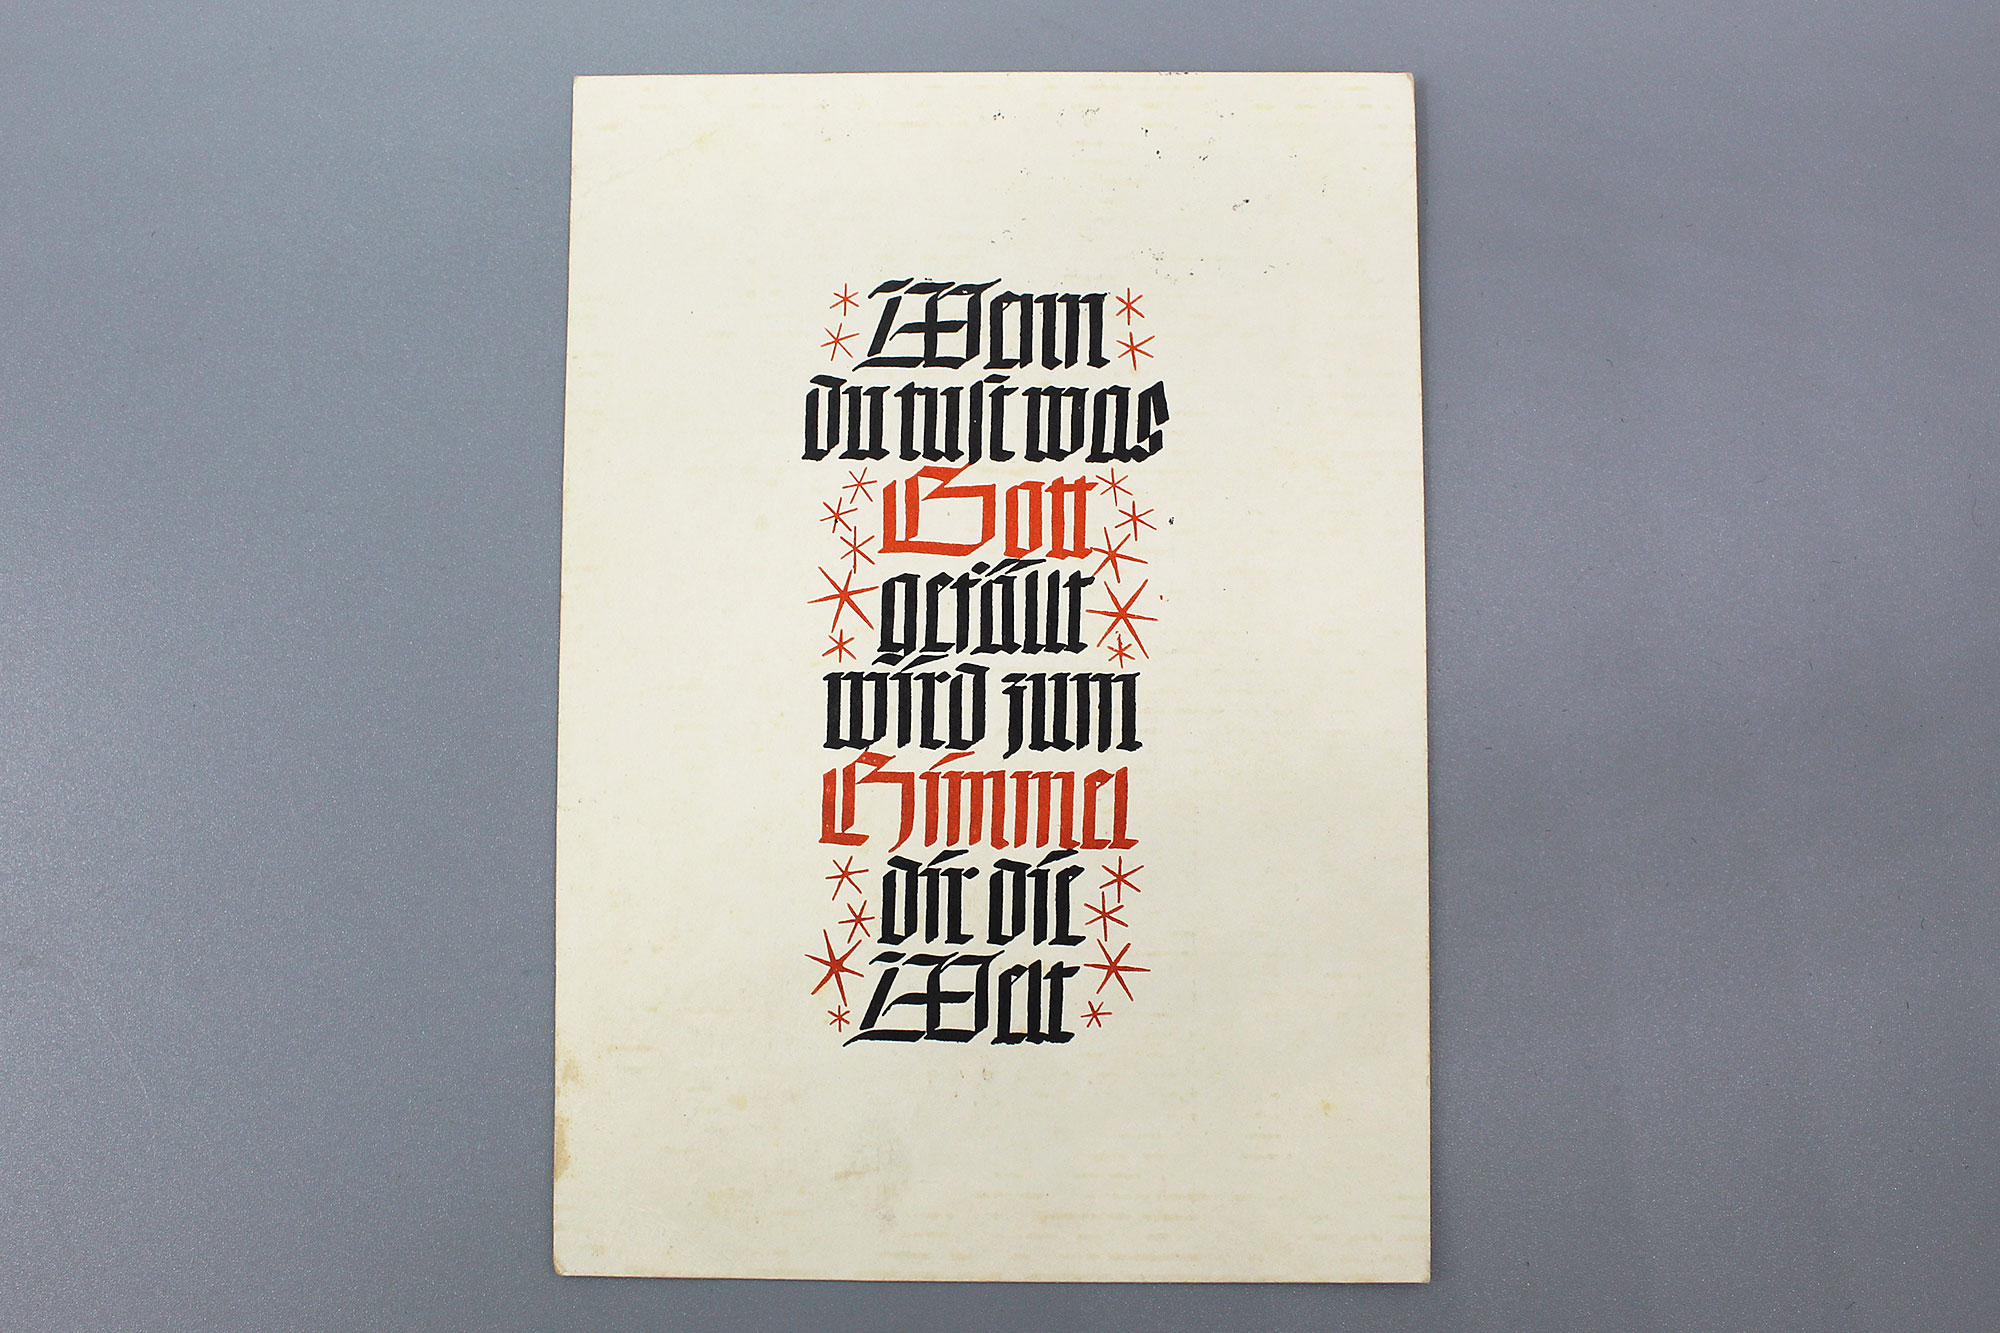 Wenn
du tust was
Gott
gefällt
wird zum
Himmel
dir die
Welt